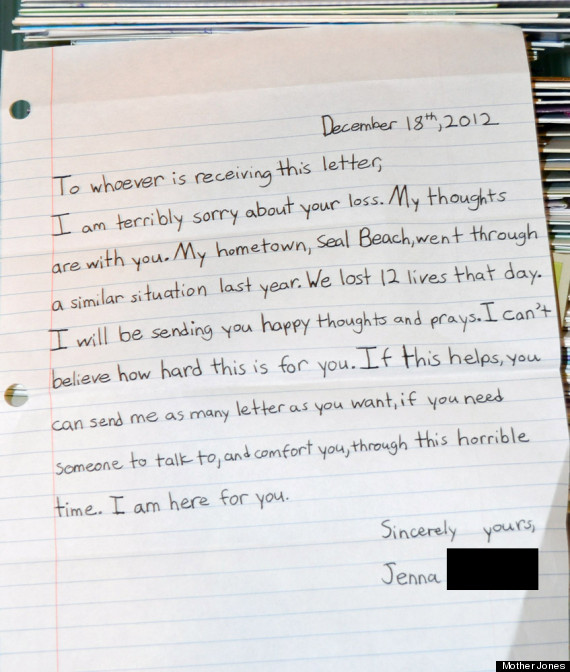 December 18th, 2012
To whoever is receiving this letter,
I am terribly sorry about your loss. My thoughts
are with you. My hometown, Seal Beach, went through
a similar situation last year. We lost 12 lives that day.
I will be sending you happy thoughts and prays. I can't
believe how hard this is for you. If this helps, you
can send me as many letter as you want, if you need
someone to talk to, and comfort you, through this horrible
time. I am here for you.
Sincerely yours,
Jenna
Mother Jones